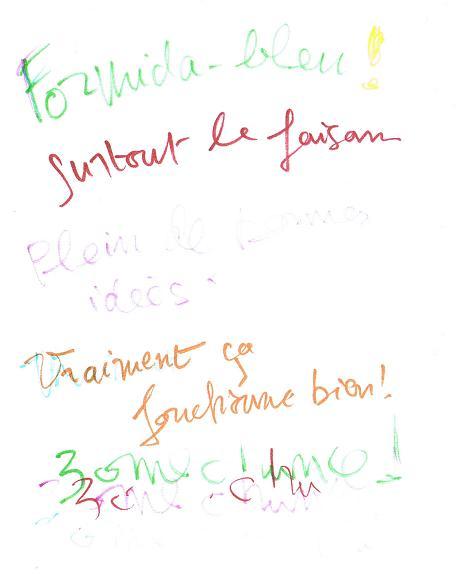 Formida-bleu !
Surtout le faisan
Plein de bonnes
idées.
Vraiment ça
fonctionne bien!